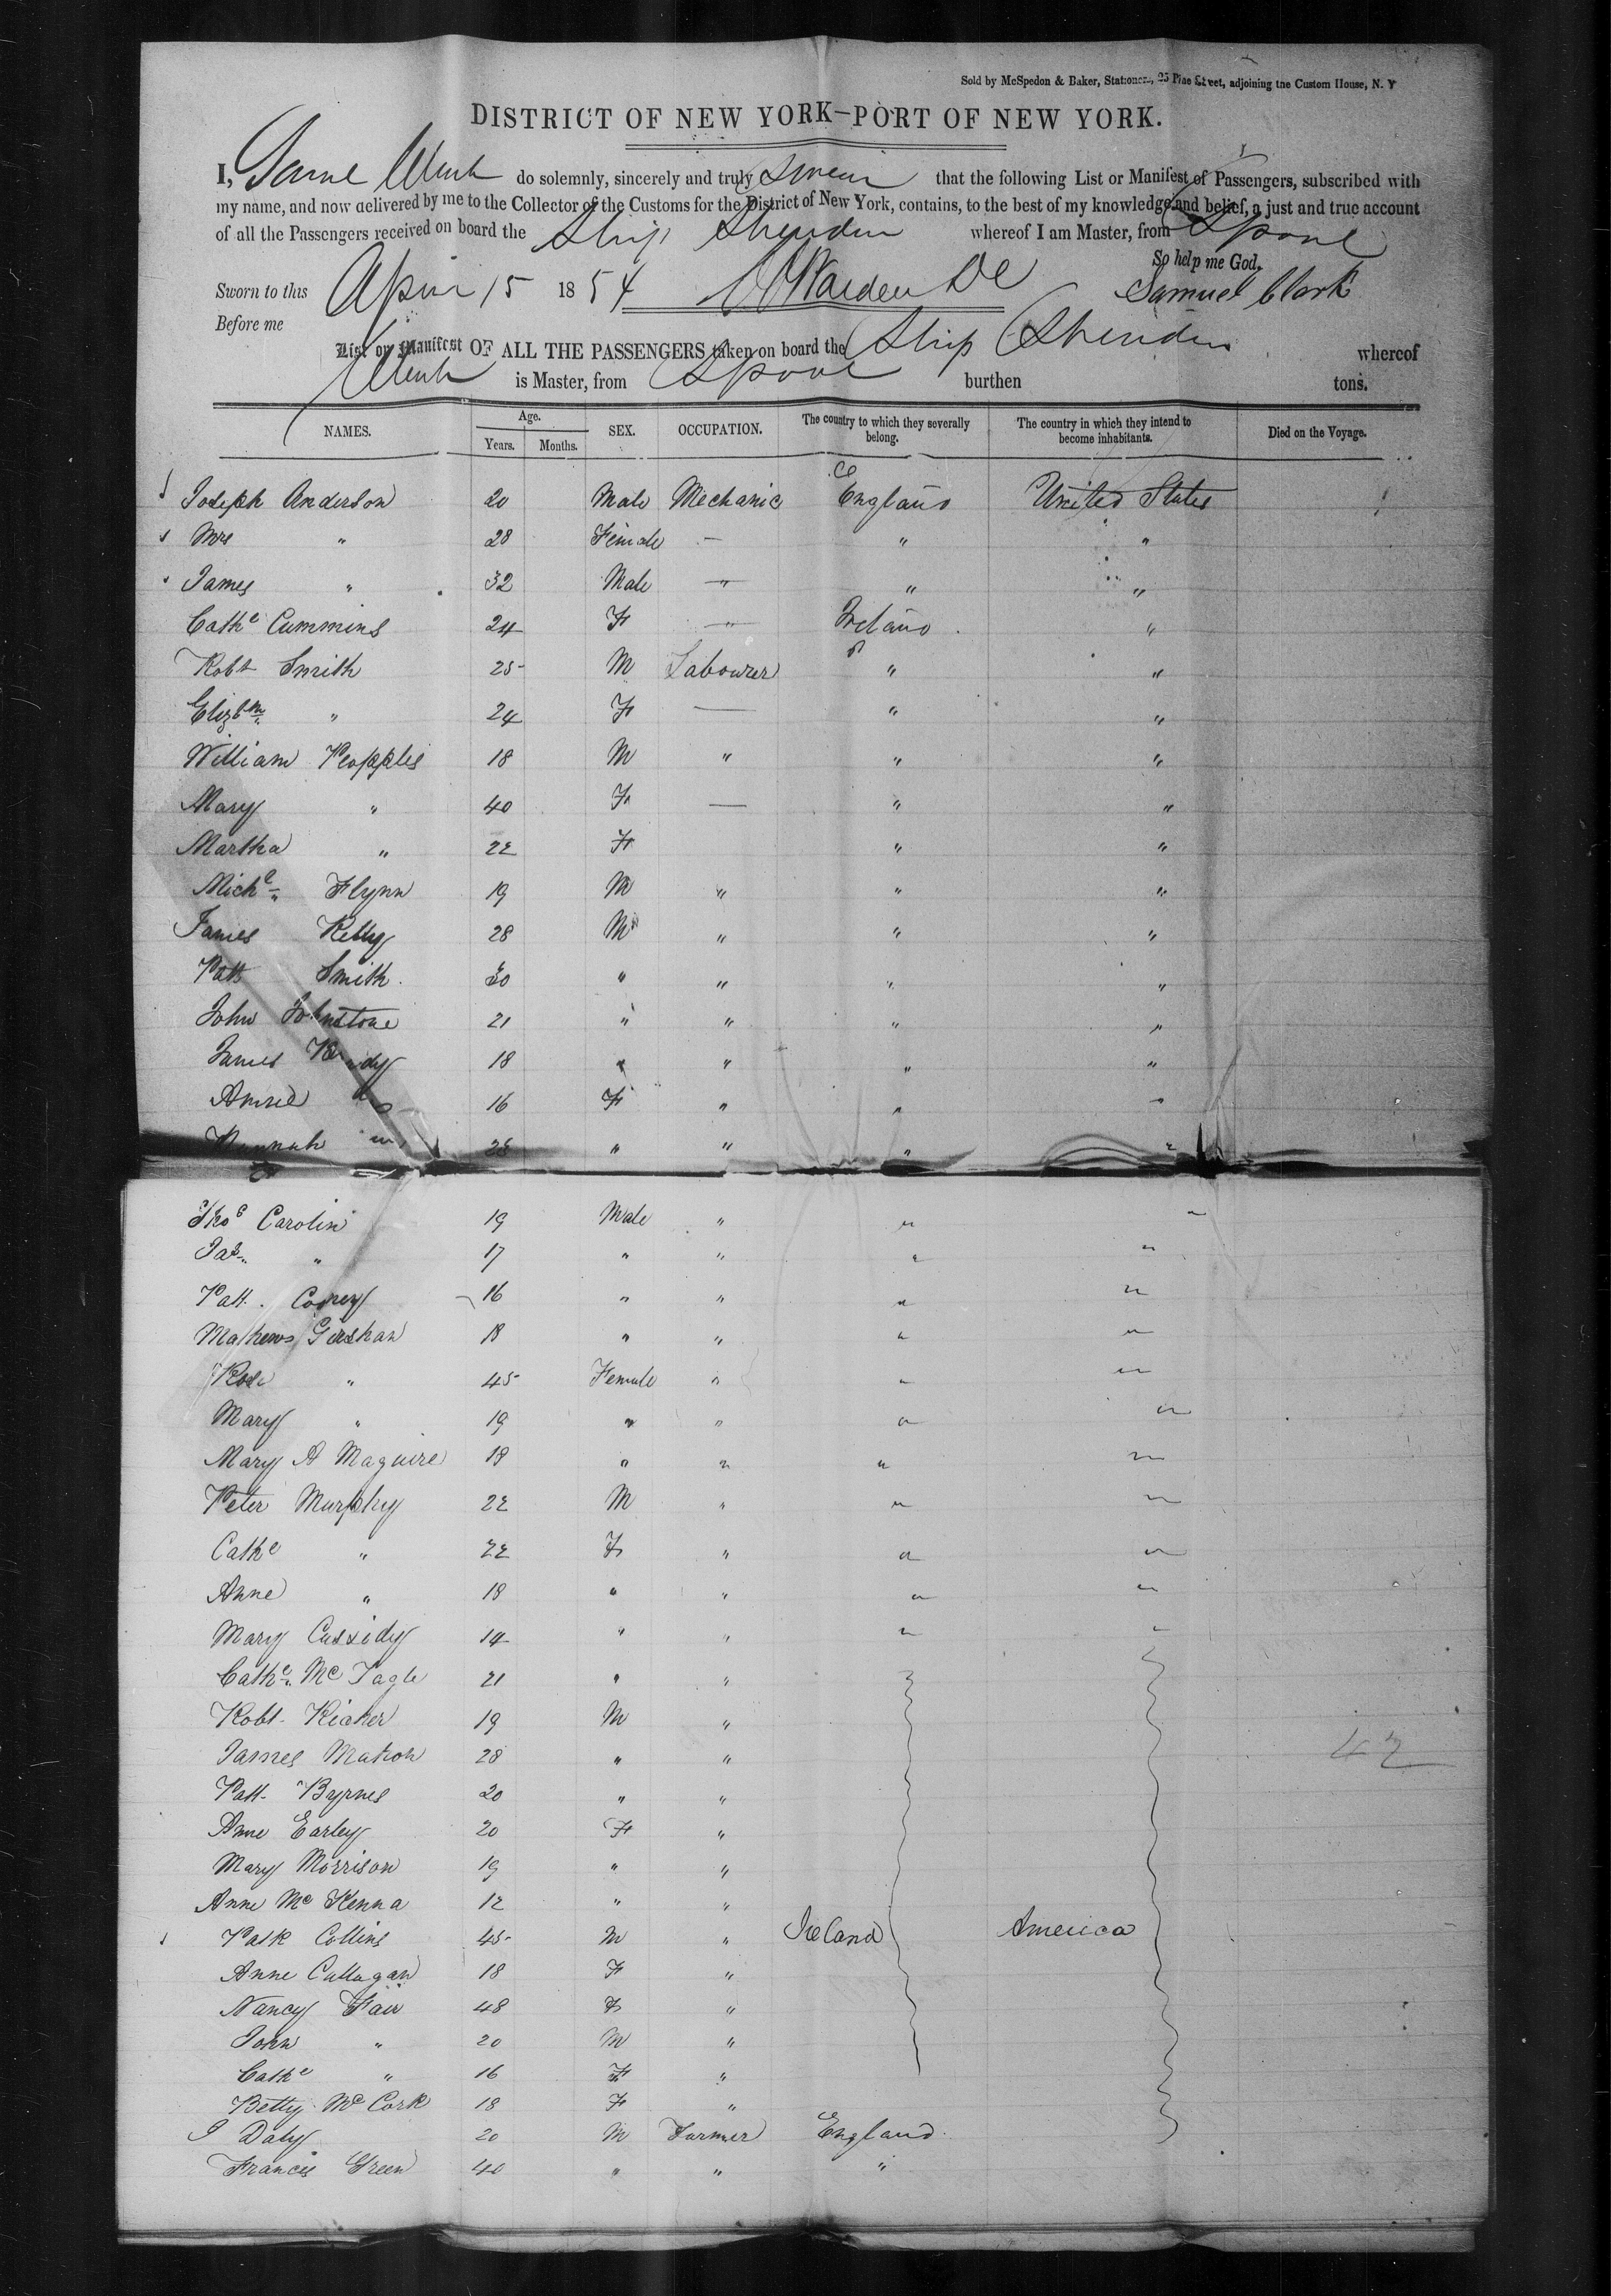 Sold by McSpedon & Baker, Stationers, 25 Pine Street, adjoining the Custom House, N. Y
DISTRICT OF NEW YORK—PORT OF NEW YORK.
I, do solemnly, sincerely and truly swear that the following List or Manifest of Passengers, subscribed with
my name, and now delivered by me to the Collector of the Customs for the District of New York, contains, to the best of my knowledge and belief, a just and true account
of all the Passengers received on board the Ship whereof I am Master, from Lpool
So help me God.
Sworn to this April 15 1854 Samuel Clark
Before me
List or Manifest OF ALL THE PASSENGERS taken on board the Ship whereof
is Master, from Lpool burthen tons.
NAMES. Age. Years. Months. SEX. OCCUPATION. The country to which they severally belong. The country in which they intend to become inhabitants. Died on the Voyage.
Joseph Anderson 20 Male Mechanic England United States
Mrs " 28 Female — " "
James " 32 Male —"— " "
Cathe Cummins 24 F —"— Ireland "
Robt Smith 25 M Labourer " "
Elizth " 24 F — " "
William Peopples 18 M " " "
Mary " 40 F — " "
Martha " 22 F " "
Michl Flynn 19 M " " "
James Kelly 28 M " " "
Patk Smith 30 " " " "
John Johnstone 21 " " " "
James 18 " " " "
16 F " " "
Hannah 28 " " " "
Thos Carolin 19 Male " " "
Jas " 17 " " " "
Patt. 16 " " " "
Mathew 18 " " " "
Rose " 45 Female " " "
Mary " 19 " " " "
Mary A Maguire 18 " " " "
Peter Murphy 22 M " " "
Cathe " 22 F " " "
Anne " 18 " " " "
Mary Cassidy 14 " " " "
Cathe Mc 21 " "
Robt 19 M "
James 28 " "
42
Patt. Byrnes 20 " "
Anne Earley 20 F "
Mary Morrison 19 " "
Anne Mc Kenna 12 " "
Patk Collins 45 M " Ireland America
Anne Callagan 18 F "
Nancy Fair 48 F "
John " 20 M "
Cathe " 16 F "
Betty Mc Cork 18 F "
J Daly 20 M Farmer England
Francis Green 40 " " "